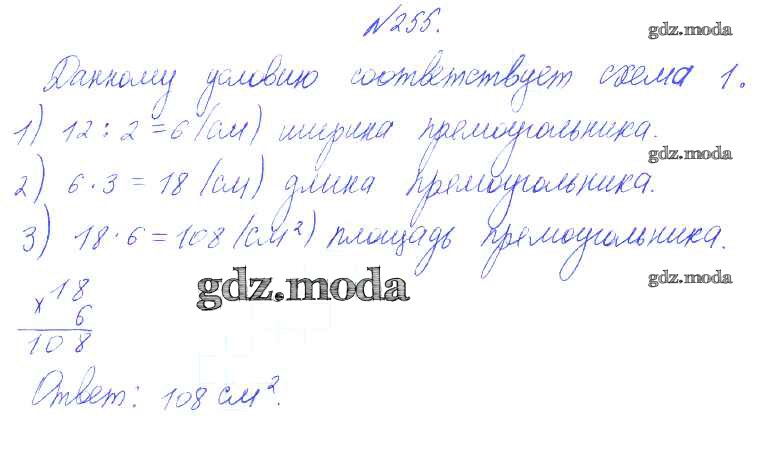 №255.
gdz.moda
Данному условию соответствует схема 1.
1) 12 : 2 = 6 (см) ширина прямоугольника.
gdz.moda
2) 6 · 3 = 18 (см) длина прямоугольника.
3) 18 · 6 = 108 (см²) площадь прямоугольника.
gdz.moda
gdz.moda
18
× 6
108
Ответ: 108 см².